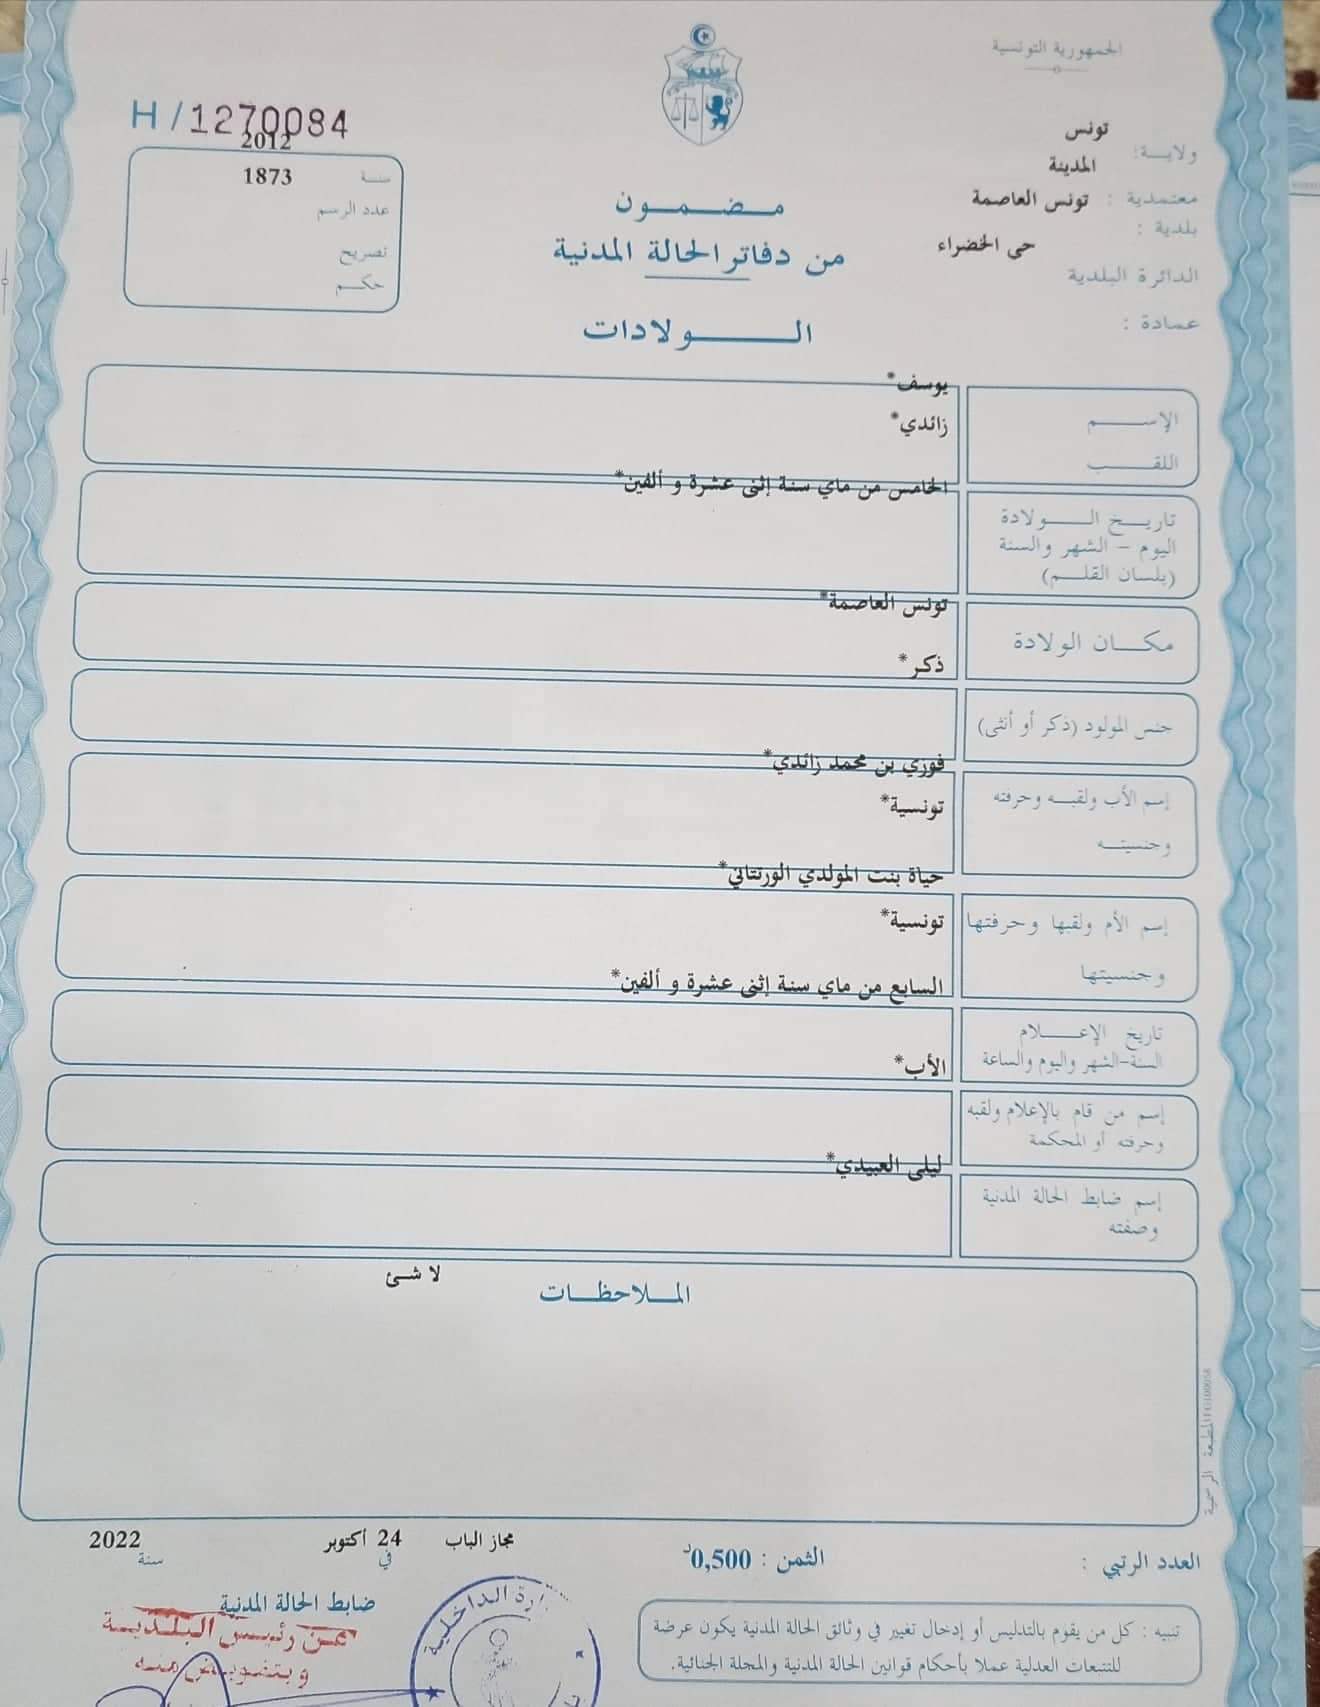 الجمهورية التونسية
H / 1270084
ولاية: تونس
المدينة
معتمدية : تونس العاصمة
بلدية :
حي الخضراء
الدائرة البلدية
عمادة :
مضمون
من دفاتر الحالة المدنية
الولادات
2012
سنة 1873
عدد الرسم
تصريح
حكم
يوسف*
الإسم
زائدي*
اللقب
الخامس من ماي سنة إثنى عشرة و ألفين*
تاريخ الولادة
اليوم – الشهر والسنة
(بلسان القلم)
تونس العاصمة*
مكان الولادة
ذكر*
جنس المولود (ذكر أو أنثى)
فوزي بن محمد زائدي*
إسم الأب ولقبه وحرفته
تونسية*
وجنسيته
حياة بنت المولدي الورتتاني*
إسم الأم ولقبها وحرفتها
تونسية*
وجنسيتها
السابع من ماي سنة إثنى عشرة و ألفين*
تاريخ الإعلام
السنة-الشهر واليوم والساعة
الأب*
إسم من قام بالإعلام ولقبه
وحرفته أو المحكمة
ليلى العبيدي*
إسم ضابط الحالة المدنية
وصفته
لا شئ
الملاحظات
المطبعة الرسمية
العدد الرتبي :
الثمن : 0,500د
مجاز الباب
في 24 أكتوبر
سنة 2022
ضابط الحالة المدنية
عن رئيس البلدية
وبتفويض منه
تنبيه : كل من يقوم بالتدليس أو إدخال تغيير في وثائق الحالة المدنية يكون عرضة
للتتبعات العدلية عملا بأحكام قوانين الحالة المدنية والمجلة الجنائية.